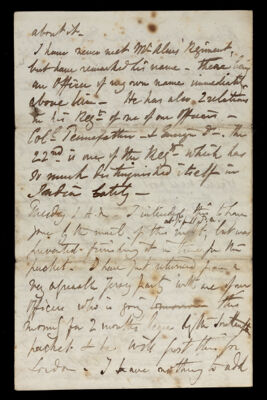 about it -
I have never met Mr Alms' Regiment,
but have remarked his name - there being
an Officer of my own name immediately
above him - He has also 2 relations
in his Regt of one of our Officers -
Colo Pennefather - & Ensign Do - The
22nd is one of the Regts which has
so much distinguished itself in
India lately -
Tuesday 1 A.M. - I intended this to have
gone by the mail of the but was
prevented finishing it in time for the
packet - I have just returned from a
very agreeable party with one of our
Officers who is going tomorrow this
morng for 2 months leave by the Southampton
packet & he will post this for
London. I have nothing to add